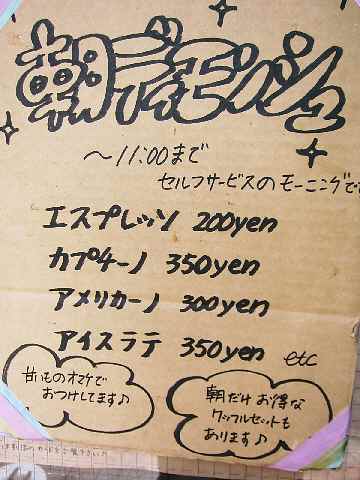 朝ディモンシュ
～11:00まで
セルフサービスのモーニングで
エスプレッソ 200yen
カプチーノ 350yen
アメリカーノ 300yen
アイスラテ 350yen etc
甘いものオマケで
おつけしてます♪
朝だけお得な
ワッフルセットも
あります♪